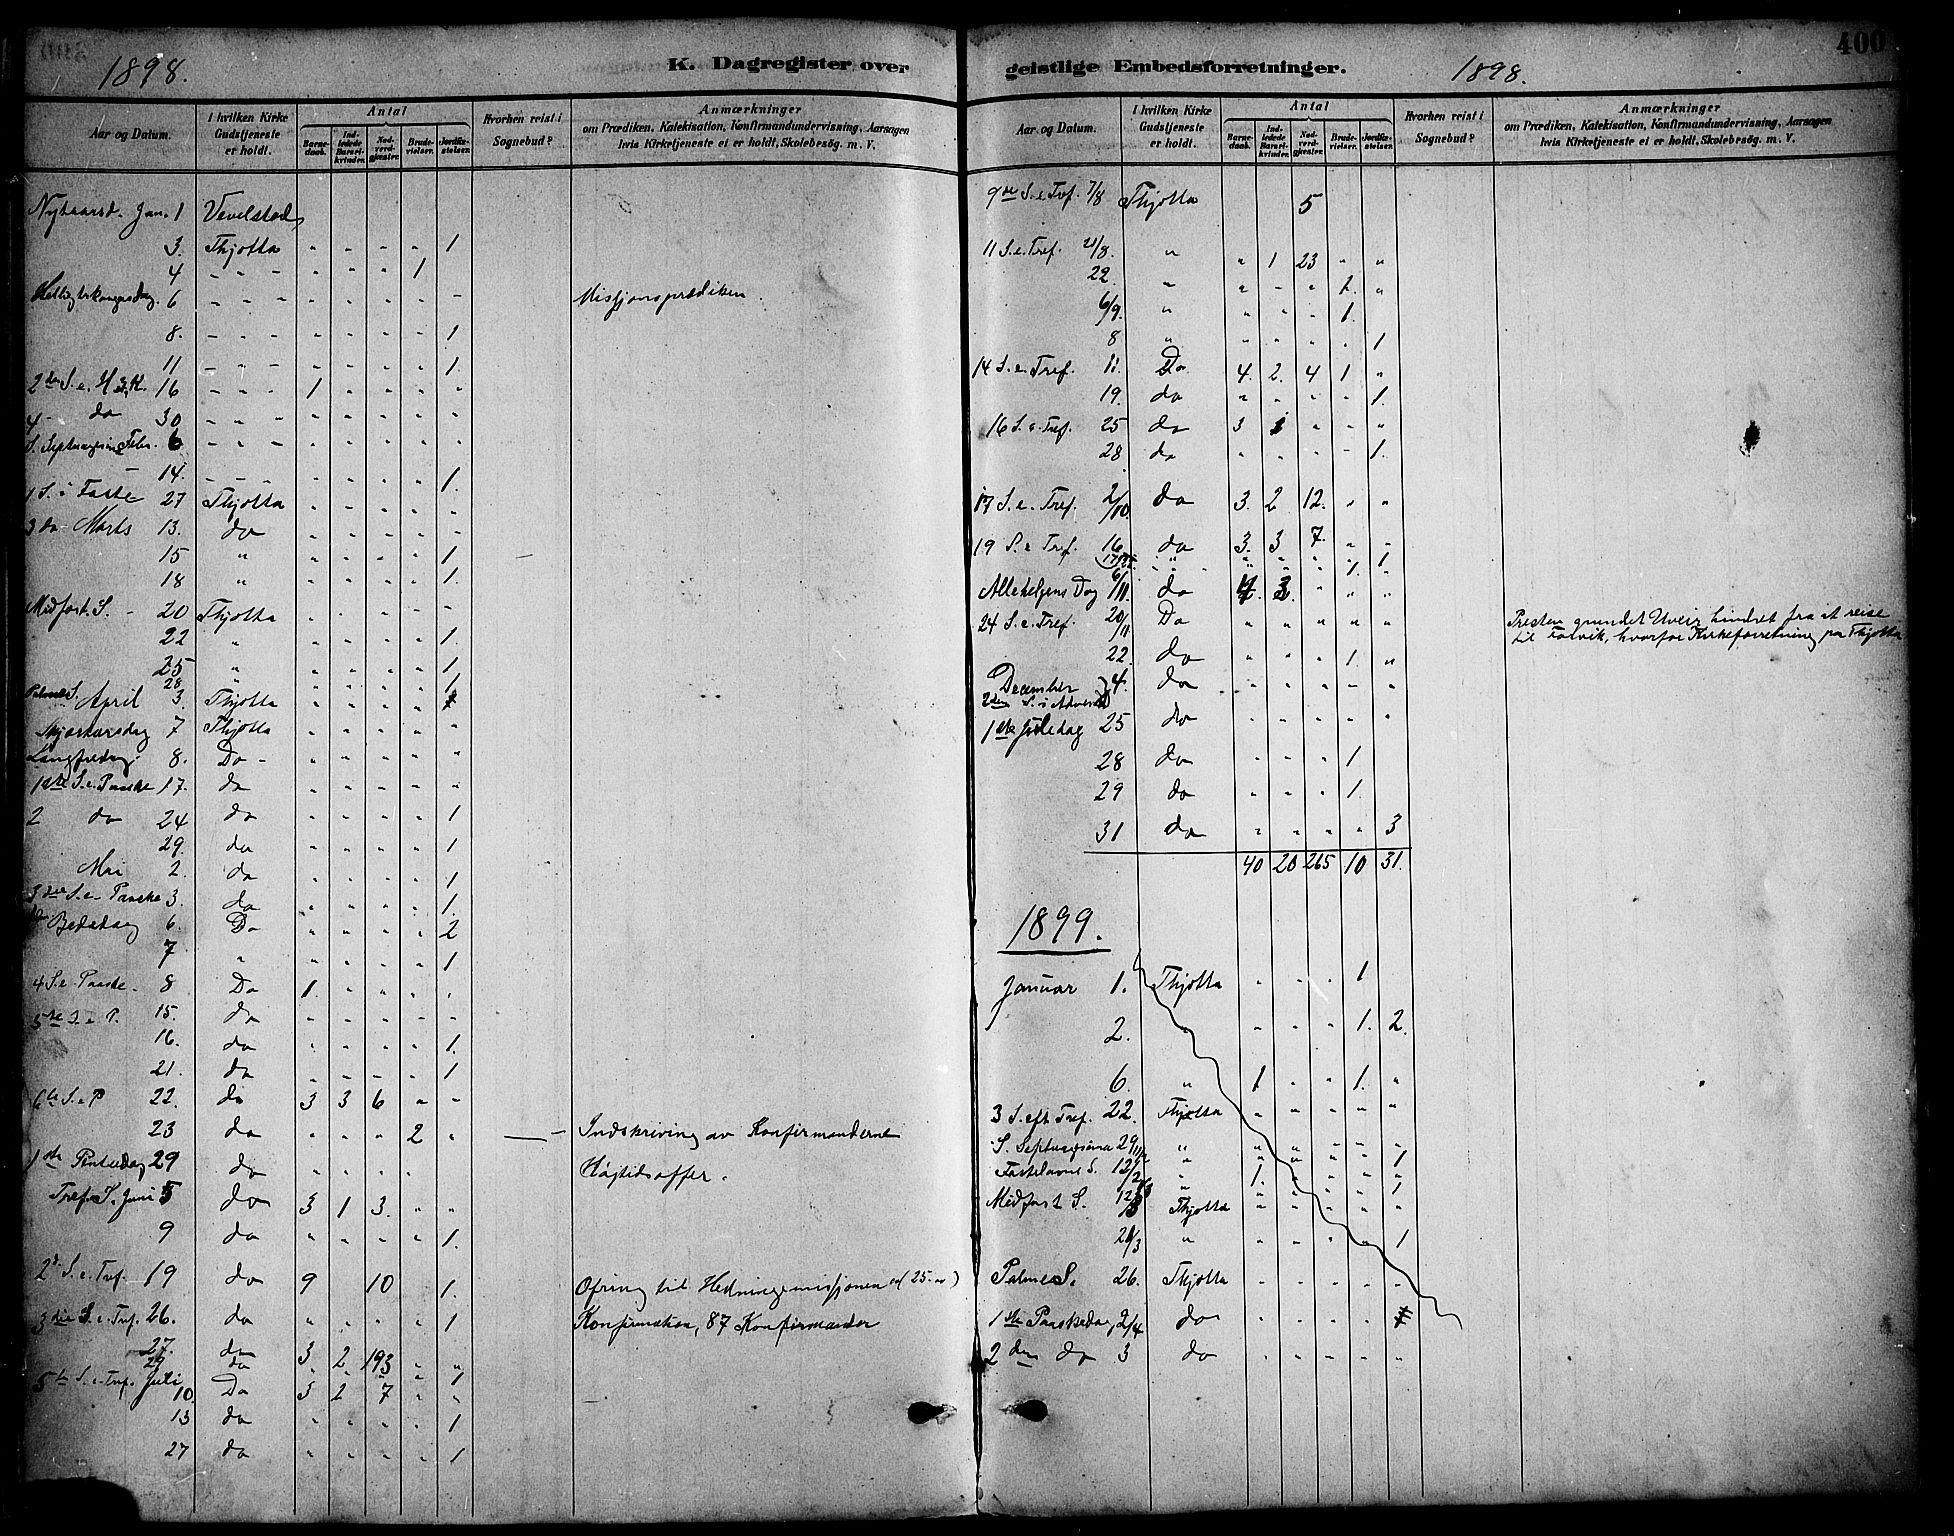 400
1898.
K. Dagregister over
geistlige Embedsforretninger.
1898.
Aar og Datum.
I hvilken Kirke Gudstjeneste er holdt.
Antal
Barnedaab.
Indledede Barselkvinder.
Nadverdgjester.
Brudevielser.
Jordfæstelser.
Hvorhen reist i Sognebud?
Anmærkninger
om Prædiken, Katekisation, Konfirmandundervisning, Aarsagen
hvis Kirketjeneste ei er holdt, Skolebesøg. m. V.
Nytaarsd. Jan. 1 Vevelstad
3. Thjotta " " " " 1
4 - - - " " " 1
Helligtrekongersdag. 6 - - - " " " " - Missjonsprædiken.
8. - - - " " " " 1
11 - - - " " " " 1.
2den S. e. H 3 K. 16 - - - 1 " " " "
4 - do 30 - " - " " " " "
S. Septuagesima Febr. 6 - - - " " " " "
14. - - - " " " " 1.
1 S. i Faste 27 Thjotta " " " " "
3 do Marts 13. do " " " " "
15 " " " " " 1
18 " " " " " 1.
Midfast. S. - 20 Thjotta " " " " "
22 " " " " " 1.
25 " " " " " 1
28 " " " " " 1
Palme S. April 3. Thjotta " " " "
Skjærtorsdag 7 Thjotta " " " " "
Langfredag. 8. Do - " " " " "
1ste S. e. Paaske 17. do " " " " "
2 do 24 do " " " " 1
29. do " " " " 1
Mai 2. do " " " " 1
3die S. e. Paaske 3. do " " " " 1.
Bededag 6. Do " " " " 2
7 " " " " " 1
4 S. e. Paaske. 8 Do 1. " " " "
5te S. e P. 15. do " " " " "
16. do " " " " 1.
21. do " " " " 1
6te S. e P 22. do 3 3 6 " "
23 do " " " 2 " Indskriving av Konfirmanderne
1ste Pintsedag 29 do " " " " Høgtidsoffer.
Tref. S. Juni 5 do 3 1 3. " "
9 do " " " " 1.
2d. S. e. Tref. 19 do 9 10 1. Ofring til Hedningemissjonen
3die S. e. Tref. 26. do " " " " 1 Konfirmation, 87 Konfirmander
27. do 3 2 193 " "
29 do " " " " 1
5te S. e. Tref. Juli 10. Do 3 2 7 " "
13 do " " " " 1
27 do " " " " 1
Aar og Datum.
I hvilken Kirke Gudstjeneste er holdt.
Antal
Barnedaab.
Indledede Barselkvinder.
Nadverdgjester.
Brudevielser.
Jordfæstelser.
Hvorhen reist i Sognebud?
Anmærkninger
om Prædiken, Katekisation, Konfirmandundervisning, Aarsagen
hvis Kirketjeneste ei er holdt, Skolebesøg. m. V.
9de S. e Tref. 7/8 Thjotta 5
11 S. e. Tref. 21/8. " " 1 23 " "
22. " " - " 2. "
6/9. " " " " 1.
8 " " " " " 1
14 S. e. Tref. 11. Do 4. 2. 4 1 "
19. do " " " " 1.
16 S. e Tref. 25 do 3 " " "
28 do " " " - 1.
17 S. e. Tref. 2/10. do 3. 2 12. " "
19 S. e Tref. 16 do 3. 3 7. " "
Allehelgens Dag 6/11. do " " "
24 S. e. Tref. 20/11 Do " " " " " Presten grundet Uveir hindret fra at reise
til Forvik, hvorfor Kirkeforretning paa Thjotta
22. do " " " 1. "
December 4. do " " " - "
2den S. i Advent
1ste Juledag 25 do " " " " "
28 do " " " 1
29 do " " " 1.
31 do " " " " 3
40 20 265 10 31.
1899.
Januar 1. Thjotta " " " 1
2. " " " " 1. 2.
6. " 1 " " 1. "
3 S. eft Tref. 22. Thjotta " " " " "
S. Septuagesima 29 " " " " "
Fastelavns S. 12/2 " 1. " " " "
Midfast S. 12/3 Thjotta " " " " "
21/3 " " " " " 1
Palme S. 26. Thjotta " " " " "
1ste Paaskedag 2/4 do " " " "
2den do 3 do " " " " "